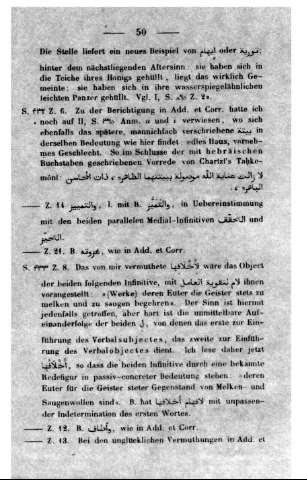 — 50 —
Die Stelle liefert ein neues Beispiel von إيهام oder تورية:
hinter dem nächstliegenden Aftersinn: sie haben sich in
die Teiche ihres Honigs gehüllt, liegt das wirklich Ge-
meinte: sie haben sich in ihre wasserspiegelähnlichen
leichten Panzer gehüllt. Vgl. I, S. Z. 2.
S. Z. 6. Zu der Berichtigung in Add. et Corr. hatte ich
noch auf II, S. Anm. und verwiesen, wo sich
ebenfalls das spätere, mannichfach verschriebene بيتة in
derselben Bedeutung wie hier findet: edles Haus, vorneh-
mes Geschlecht. So im Schlusse der mit hebräischen
Buchstaben geschriebenen Vorrede von Charizî's Taḥke-
mônî: لا زالت عناية الله موصولة ببيتتها الطاهرة، ذات
— Z. 14 l. mit B. والتمييز, in Uebereinstimmung
mit den beiden parallelen Medial-Infinitiven التخفّف und
— Z. 21. B. wie in Add. et Corr.
S. Z. 8. Das von mir vermuthete لأخلافها wäre das Object
der beiden folgenden Infinitive, mit لام لتقوية العامل ihnen
vorangestellt: »(Werke) deren Euter die Geister stets zu
melken und zu saugen begehren«. Der Sinn ist hiermit
jedenfalls getroffen, aber hart ist die unmittelbare Auf-
einanderfolge der beiden ل, von denen das erste zur Ein-
führung des Verbalsubjectes, das zweite zur Einfüh-
rung des Verbalobjectes dient. Ich lese daher jetzt
أخلافها, so dass die beiden Infinitive durch eine bekannte
Redefigur in passiv-concreter Bedeutung stehen: »deren
Euter für die Geister steter Gegenstand von Melken- und
Saugenwollen sind«. B. hat mit unpassen-
der Indetermination des ersten Wortes.
— Z. 12. B. wie in Add. et Corr.
— Z. 13. Bei den unglücklichen Vermuthungen in Add. et